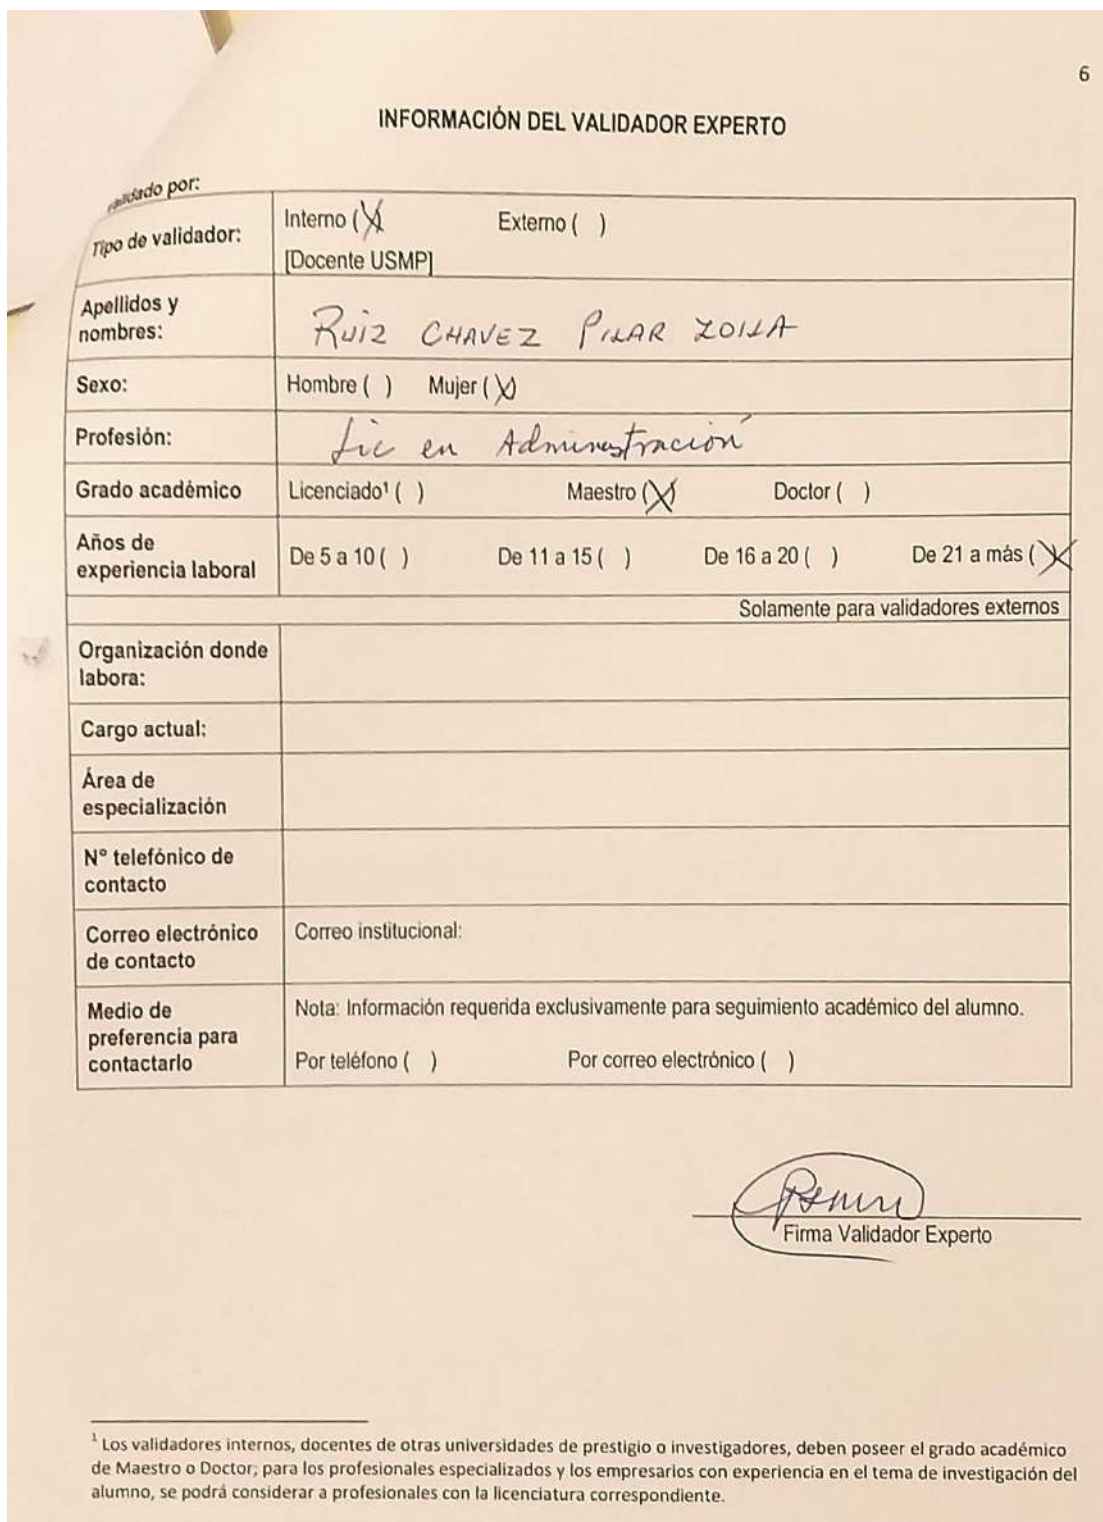 6
INFORMACIÓN DEL VALIDADOR EXPERTO
Validado por:
Tipo de validador:
Interno (X)
Externo ( )
[Docente USMP]
Apellidos y
nombres:
RUIZ CHAVEZ PILAR ZOILA
Sexo:
Hombre ( )
Mujer (X)
Profesión:
Lic en Administración
Grado académico
Licenciado¹ ( )
Maestro (X)
Doctor ( )
Años de
experiencia laboral
De 5 a 10 ( )
De 11 a 15 ( )
De 16 a 20 ( )
De 21 a más (X
Solamente para validadores externos
Organización donde
labora:
Cargo actual:
Área de
especialización
N° telefónico de
contacto
Correo electrónico
de contacto
Correo institucional:
Medio de
preferencia para
contactarlo
Nota: Información requerida exclusivamente para seguimiento académico del alumno.
Por teléfono ( )
Por correo electrónico ( )
Firma Validador Experto
¹ Los validadores internos, docentes de otras universidades de prestigio o investigadores, deben poseer el grado académico
de Maestro o Doctor; para los profesionales especializados y los empresarios con experiencia en el tema de investigación del
alumno, se podrá considerar a profesionales con la licenciatura correspondiente.